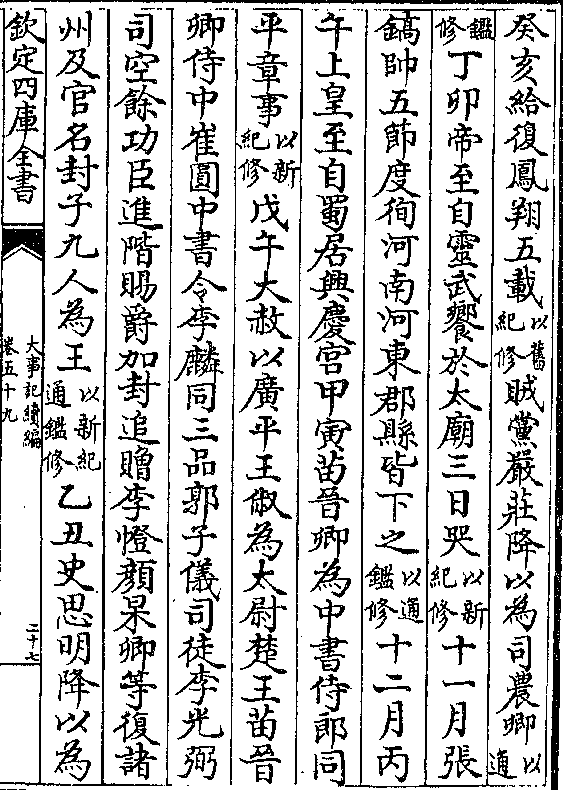 癸亥給復鳳翔五載以舊紀修賊黨嚴莊降以為司農卿以通
鑑修丁卯帝至自靈武饗於太廟三日哭以新紀修十一月張
鎬帥五節度徇河南河東郡縣皆下之以通鑑修十二月丙
午上皇至自蜀居興慶宮甲寅苗晉卿為中書侍郎同
平章事以新紀修戊午大赦以廣平王俶為太尉楚王苗晉
卿侍中崔圓中書令李麟同三品郭子儀司徒李光弼
司空餘功臣進階賜爵加封追贈李憕顏杲卿等復諸
州及官名封子九人為王以新紀通鑑修乙丑史思明降以為
欽定四庫全書
大事記續編
卷五十九
二十七